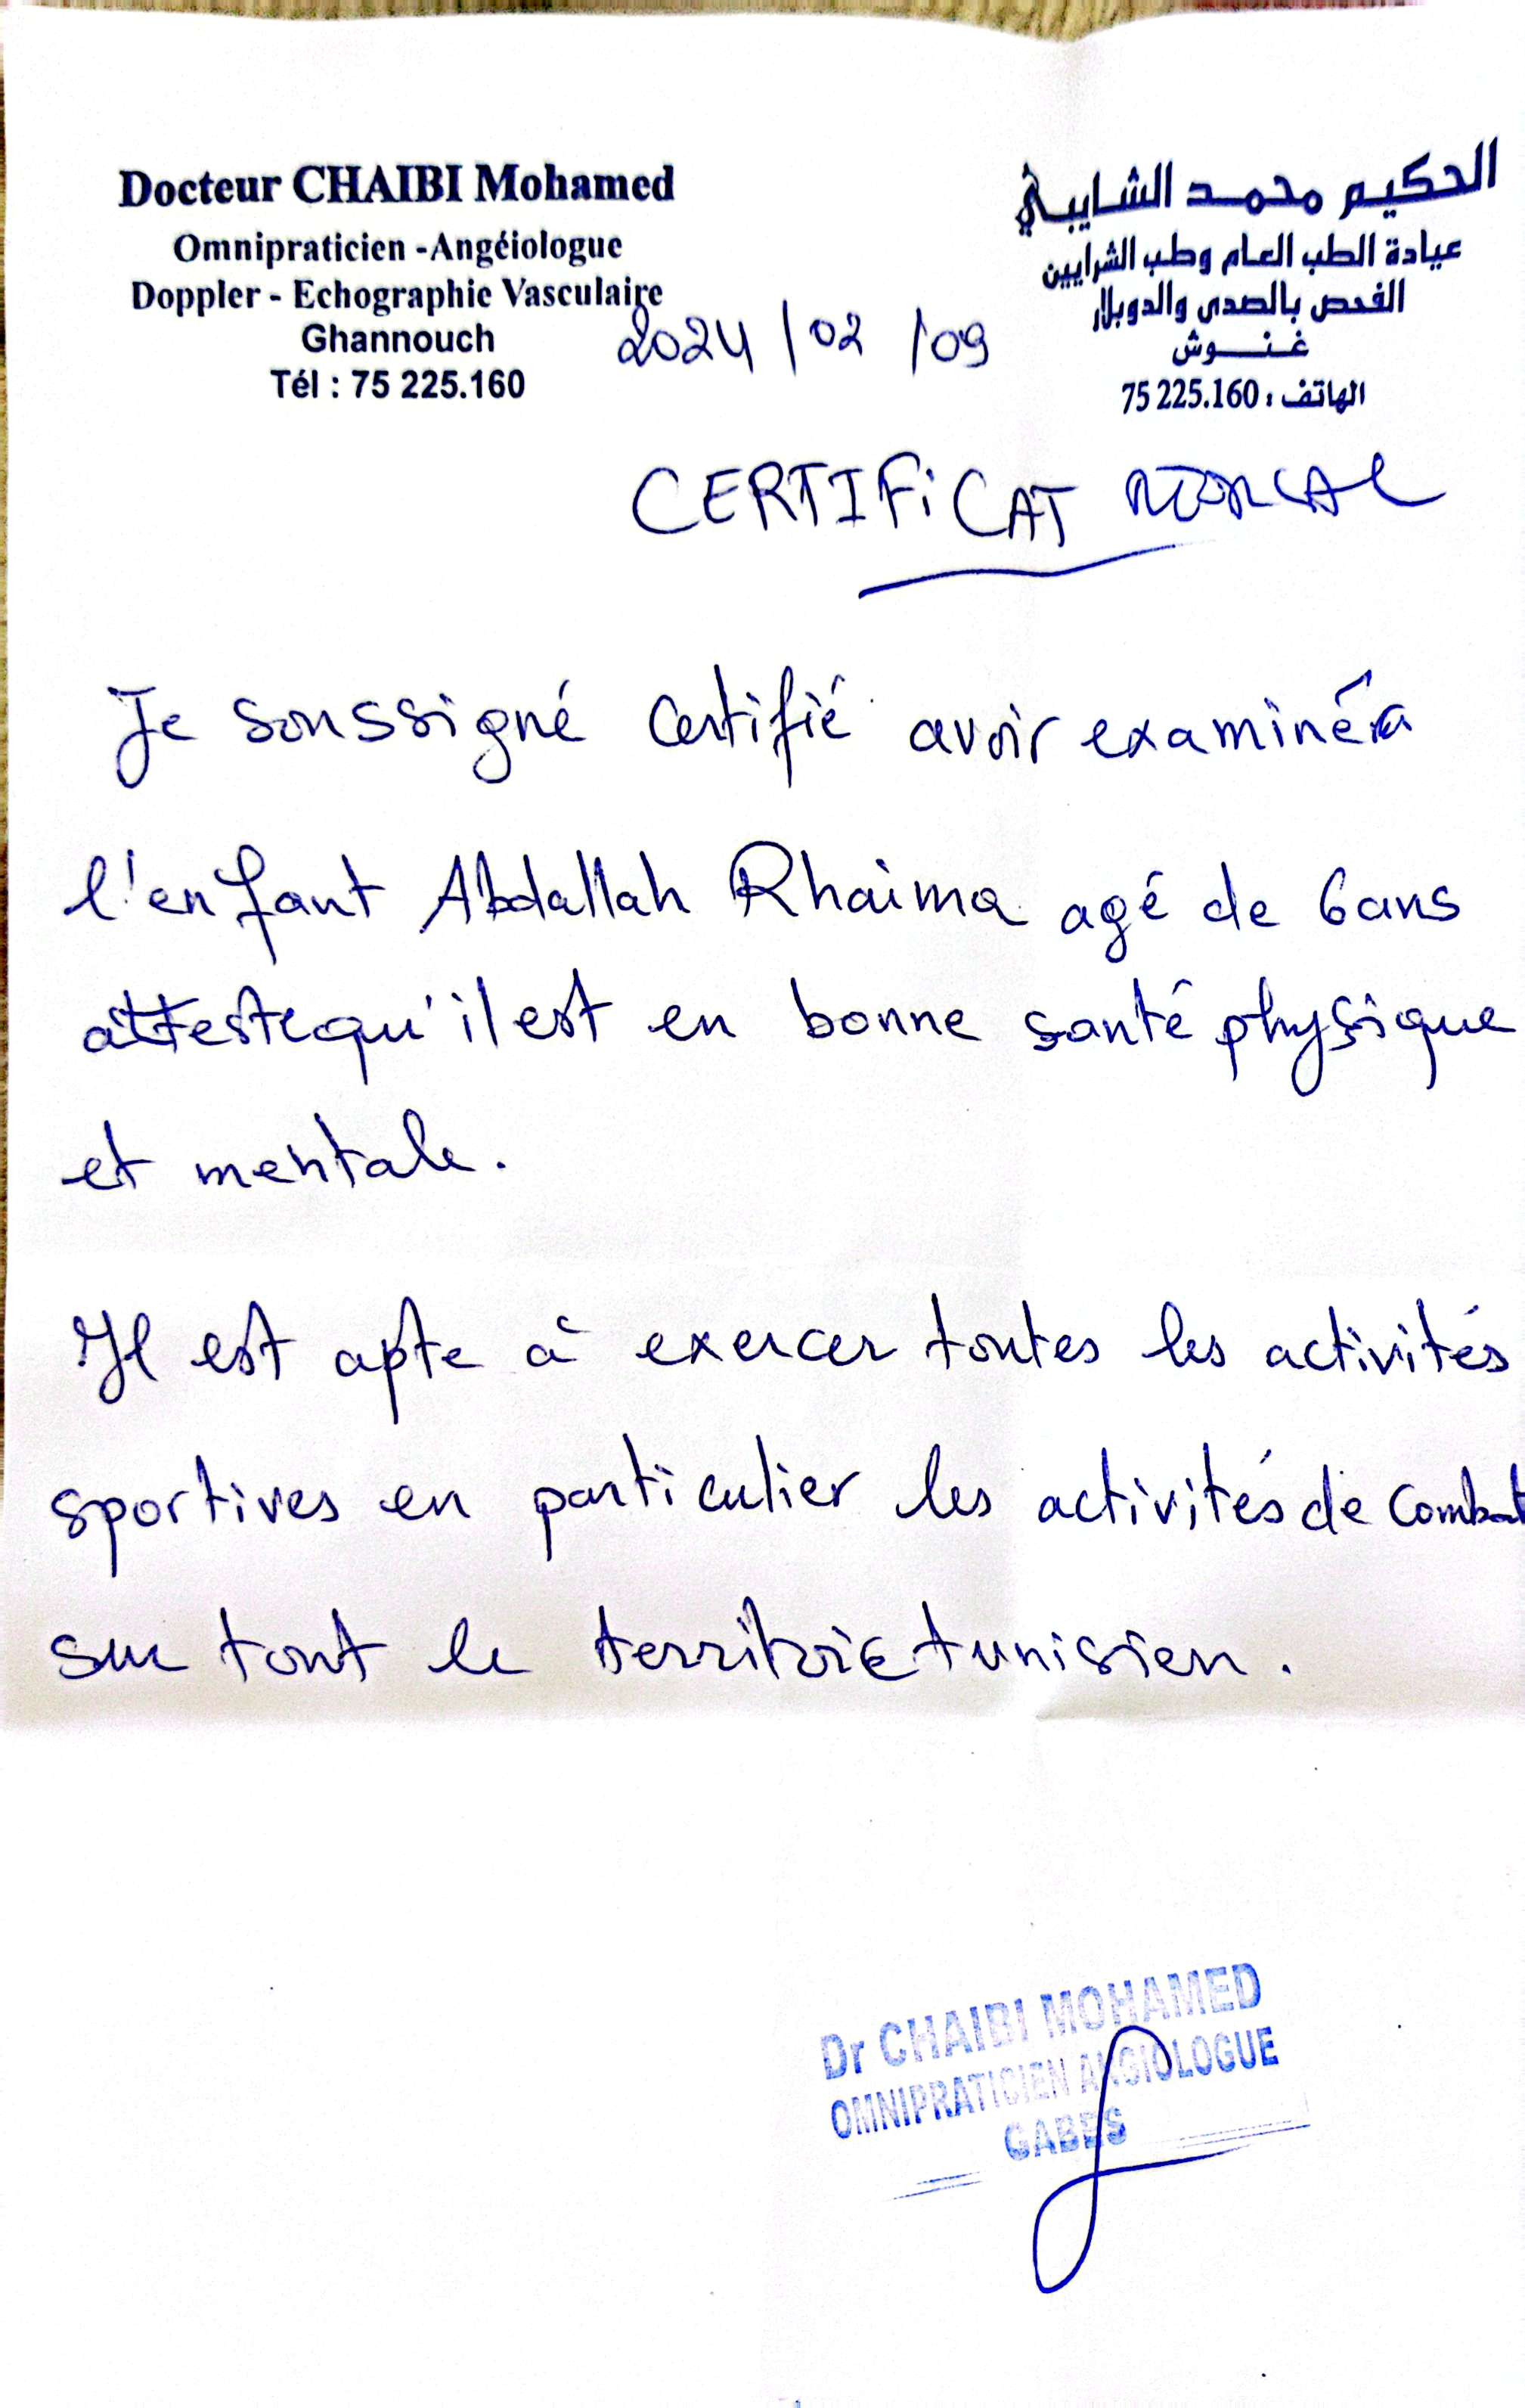 Docteur CHAIBI Mohamed
Omnipraticien -Angéiologue
Doppler - Echographie Vasculaire
Ghannouch
Tél : 75 225.160
الحكيم محمد الشايبي
عيادة الطب العام وطب الشرايين
الفحص بالصدى والدوبلار
غنوش
الهاتف : 75 225.160
2024/02/09
CERTIFiCAT
Je soussigné certifié avoir examiné
l'enfant Abdallah Rhaima agé de 6 ans
atteste qu'il est en bonne santé physique
et mentale.
Il est apte à exercer toutes les activités
sportives en particulier les activités de combat
sur tout le territoire tunisien.
Dr CHAIBI MOHAMED
OMNIPRATICIEN ANGIOLOGUE
GABES